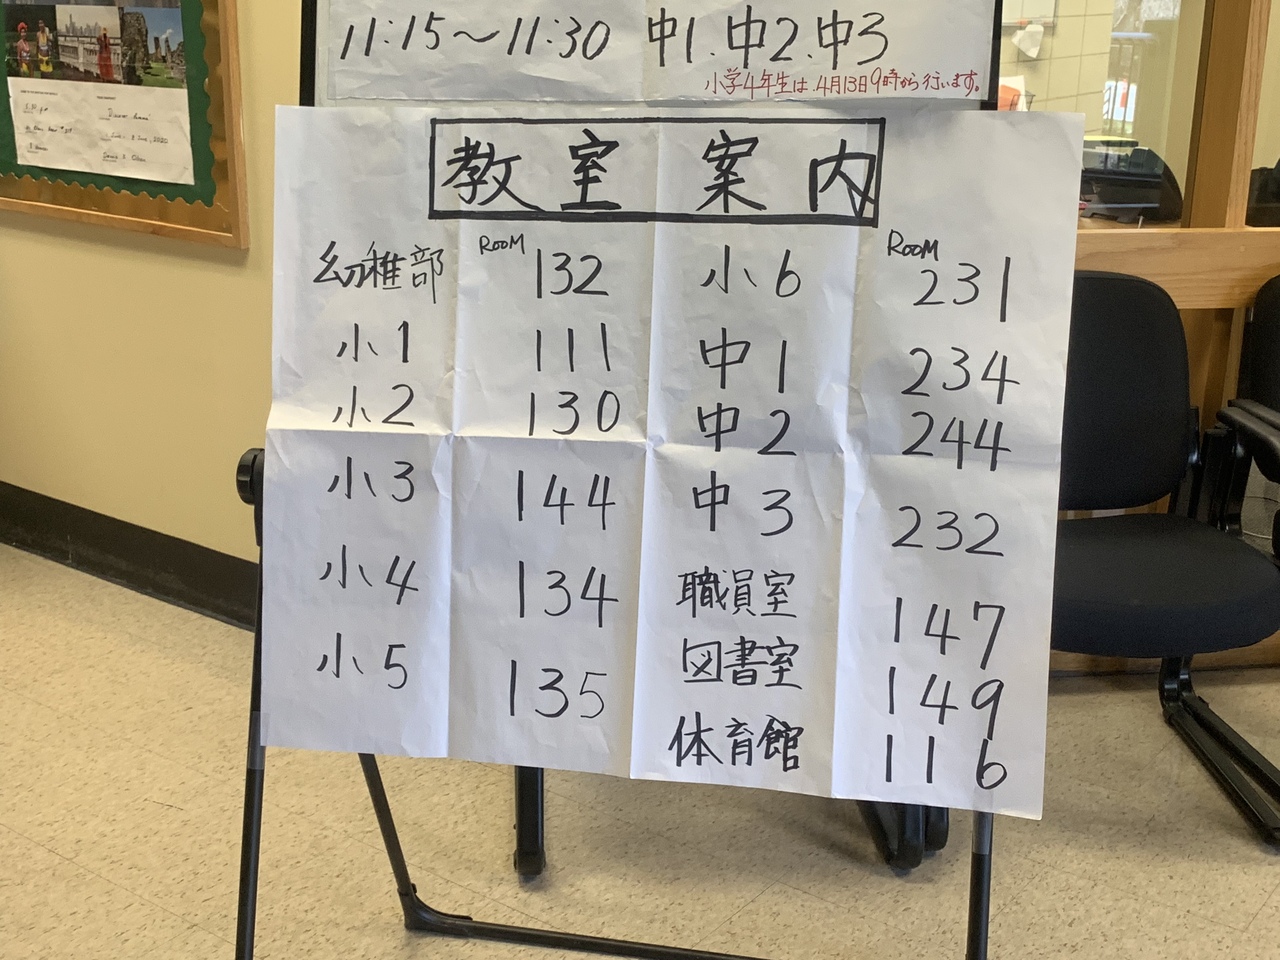 11:15～11:30 中1.中2.中3
小学4年生は、4月13日9時から行います。
教室案内
ROOM
幼稚部 132
小1 111
小2 130
小3 144
小4 134
小5 135
ROOM
小6 231
中1 234
中2 244
中3 232
職員室 147
図書室 149
体育館 116